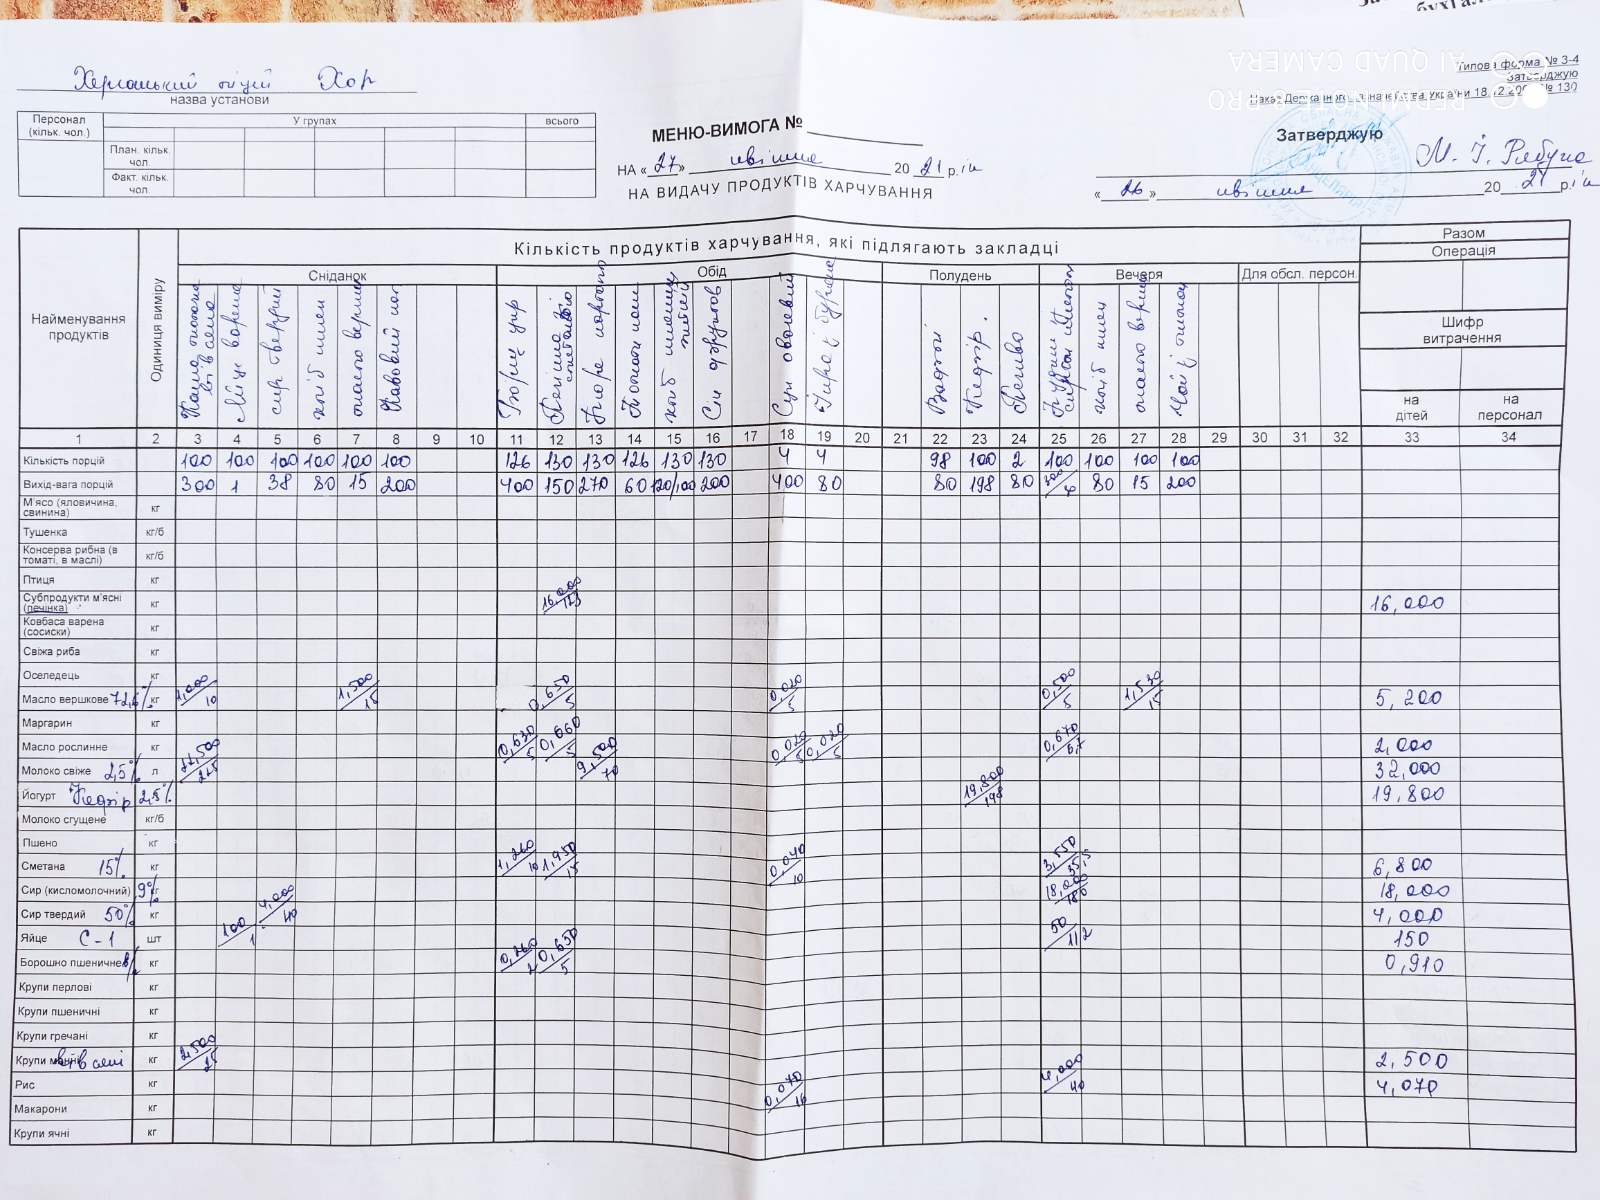 За
бухгал
AI QUAD CAMERA
REDMI NOTE 8 PRO
Типова форма № З-4
Затверджую
Наказ Державного казначейства України 18.12.200 № 130
ліцей
назва установи
Персонал (кільк. чол.)
У групах
всього
План. кільк. чол.
Факт. кільк. чол.
МЕНЮ-ВИМОГА №
НА «27» квітня 2021 р.
НА ВИДАЧУ ПРОДУКТІВ ХАРЧУВАННЯ
Затверджую
М. І. Рябуха
«26» квітня 2021 р.
Найменування продуктів
Одиниця виміру
Кількість продуктів харчування, які підлягають закладці
Разом
Операція
Сніданок
Обід
Полудень
Вечеря
Для обсл. персон.
Шифр витрачення
на дітей
на персонал
Каша молочна вівсяна
Яйце варене
сир твердий
хліб пшен
масло вершк
Какавовий нап
Борщ укр
Печінка зі сметаною
Пюре картопл
хліб пшениц житній
Сік фруктов
Суп овочевий
Ікра з буряка
Кефір
Печиво
хліб пшен
масло вершк
Чай з лимон
1 2 3 4 5 6 7 8 9 10 11 12 13 14 15 16 17 18 19 20 21 22 23 24 25 26 27 28 29 30 31 32 33 34
Кількість порцій 100 100 100 100 100 100 126 130 130 126 130 130 4 4 98 100 2 100 100 100 100
Вихід-вага порцій 300 1 38 80 15 200 400 150 270 60 120/100 200 400 80 80 198 80 80 15 200
М'ясо (яловичина, свинина) кг
Тушенка кг/б
Консерва рибна (в томаті, в маслі) кг/б
Птиця кг
Субпродукти м'ясні (печінка) кг 16,000/123 16,000
Ковбаса варена (сосиски) кг
Свіжа риба кг
Оселедець кг
Масло вершкове 72,6% кг 1,000/10 1,500/15 0,650/5 0,020/5 0,500/5 1,530/15 5,200
Маргарин кг
Масло рослинне кг 0,630/5 0,660/5 0,020/5 0,020/5 0,670/6,7 2,000
Молоко свіже 2,5% л 22,500/225 9,500/70 32,000
Йогурт Кефір 2,5% 19,800/198 19,800
Молоко сгущене кг/б
Пшено кг
Сметана 15% кг 1,260/10 1,950/15 0,040/10 3,550/35,5 6,800
Сир (кисломолочний) 9% кг 18,000/180 18,000
Сир твердий 50% кг 4,000/40 4,000
Яйце С-1 шт 100/1 50/1/2 150
Борошно пшеничне в/г кг 0,260/2 0,650/5 0,910
Крупи перлові кг
Крупи пшеничні кг
Крупи гречані кг
Крупи манні вівсяні кг 2,500/25 2,500
Рис кг 0,070/16 4,000/40 4,070
Макарони кг
Крупи ячні кг